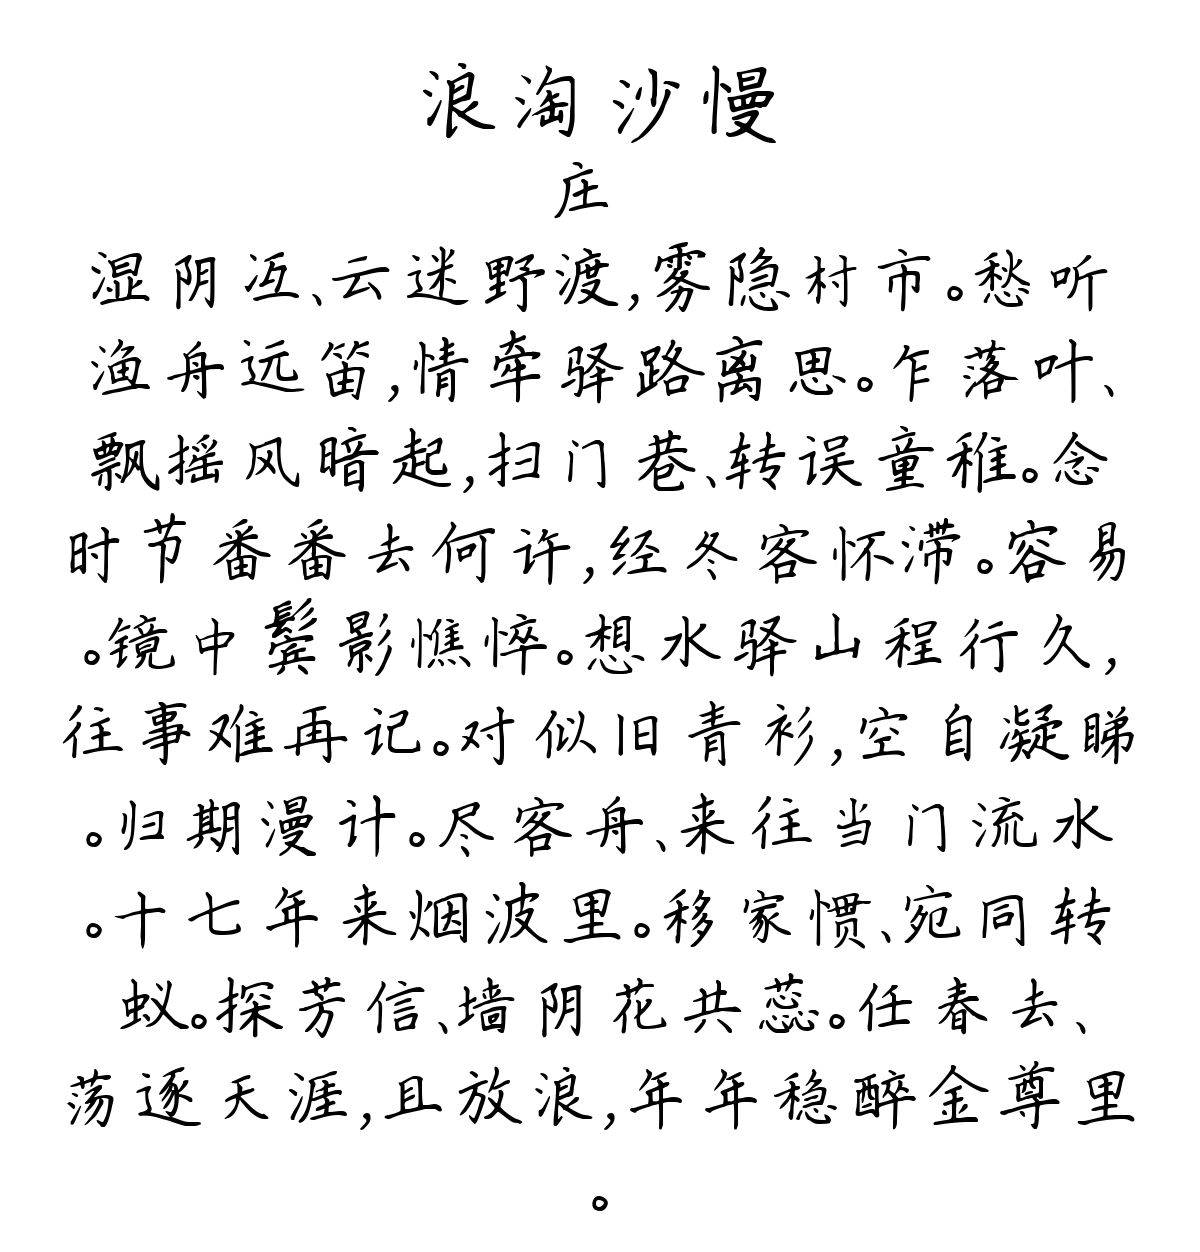 浪淘沙慢
庄
湿阴冱、云迷野渡,雾隐村市。愁听
渔舟远笛,情牵驿路离思。乍落叶、
飘摇风暗起,扫门巷、转误童稚。念
时节番番去何许,经冬客怀滞。容易
。镜中鬓影憔悴。想水驿山程行久,
往事难再记。对似旧青衫,空自凝睇
。归期漫计。尽客舟、来往当门流水
。十七年来烟波里。移家惯、宛同转
蚁。探芳信、墙阴花共蕊。任春去、
荡逐天涯,且放浪,年年稳醉金尊里
。